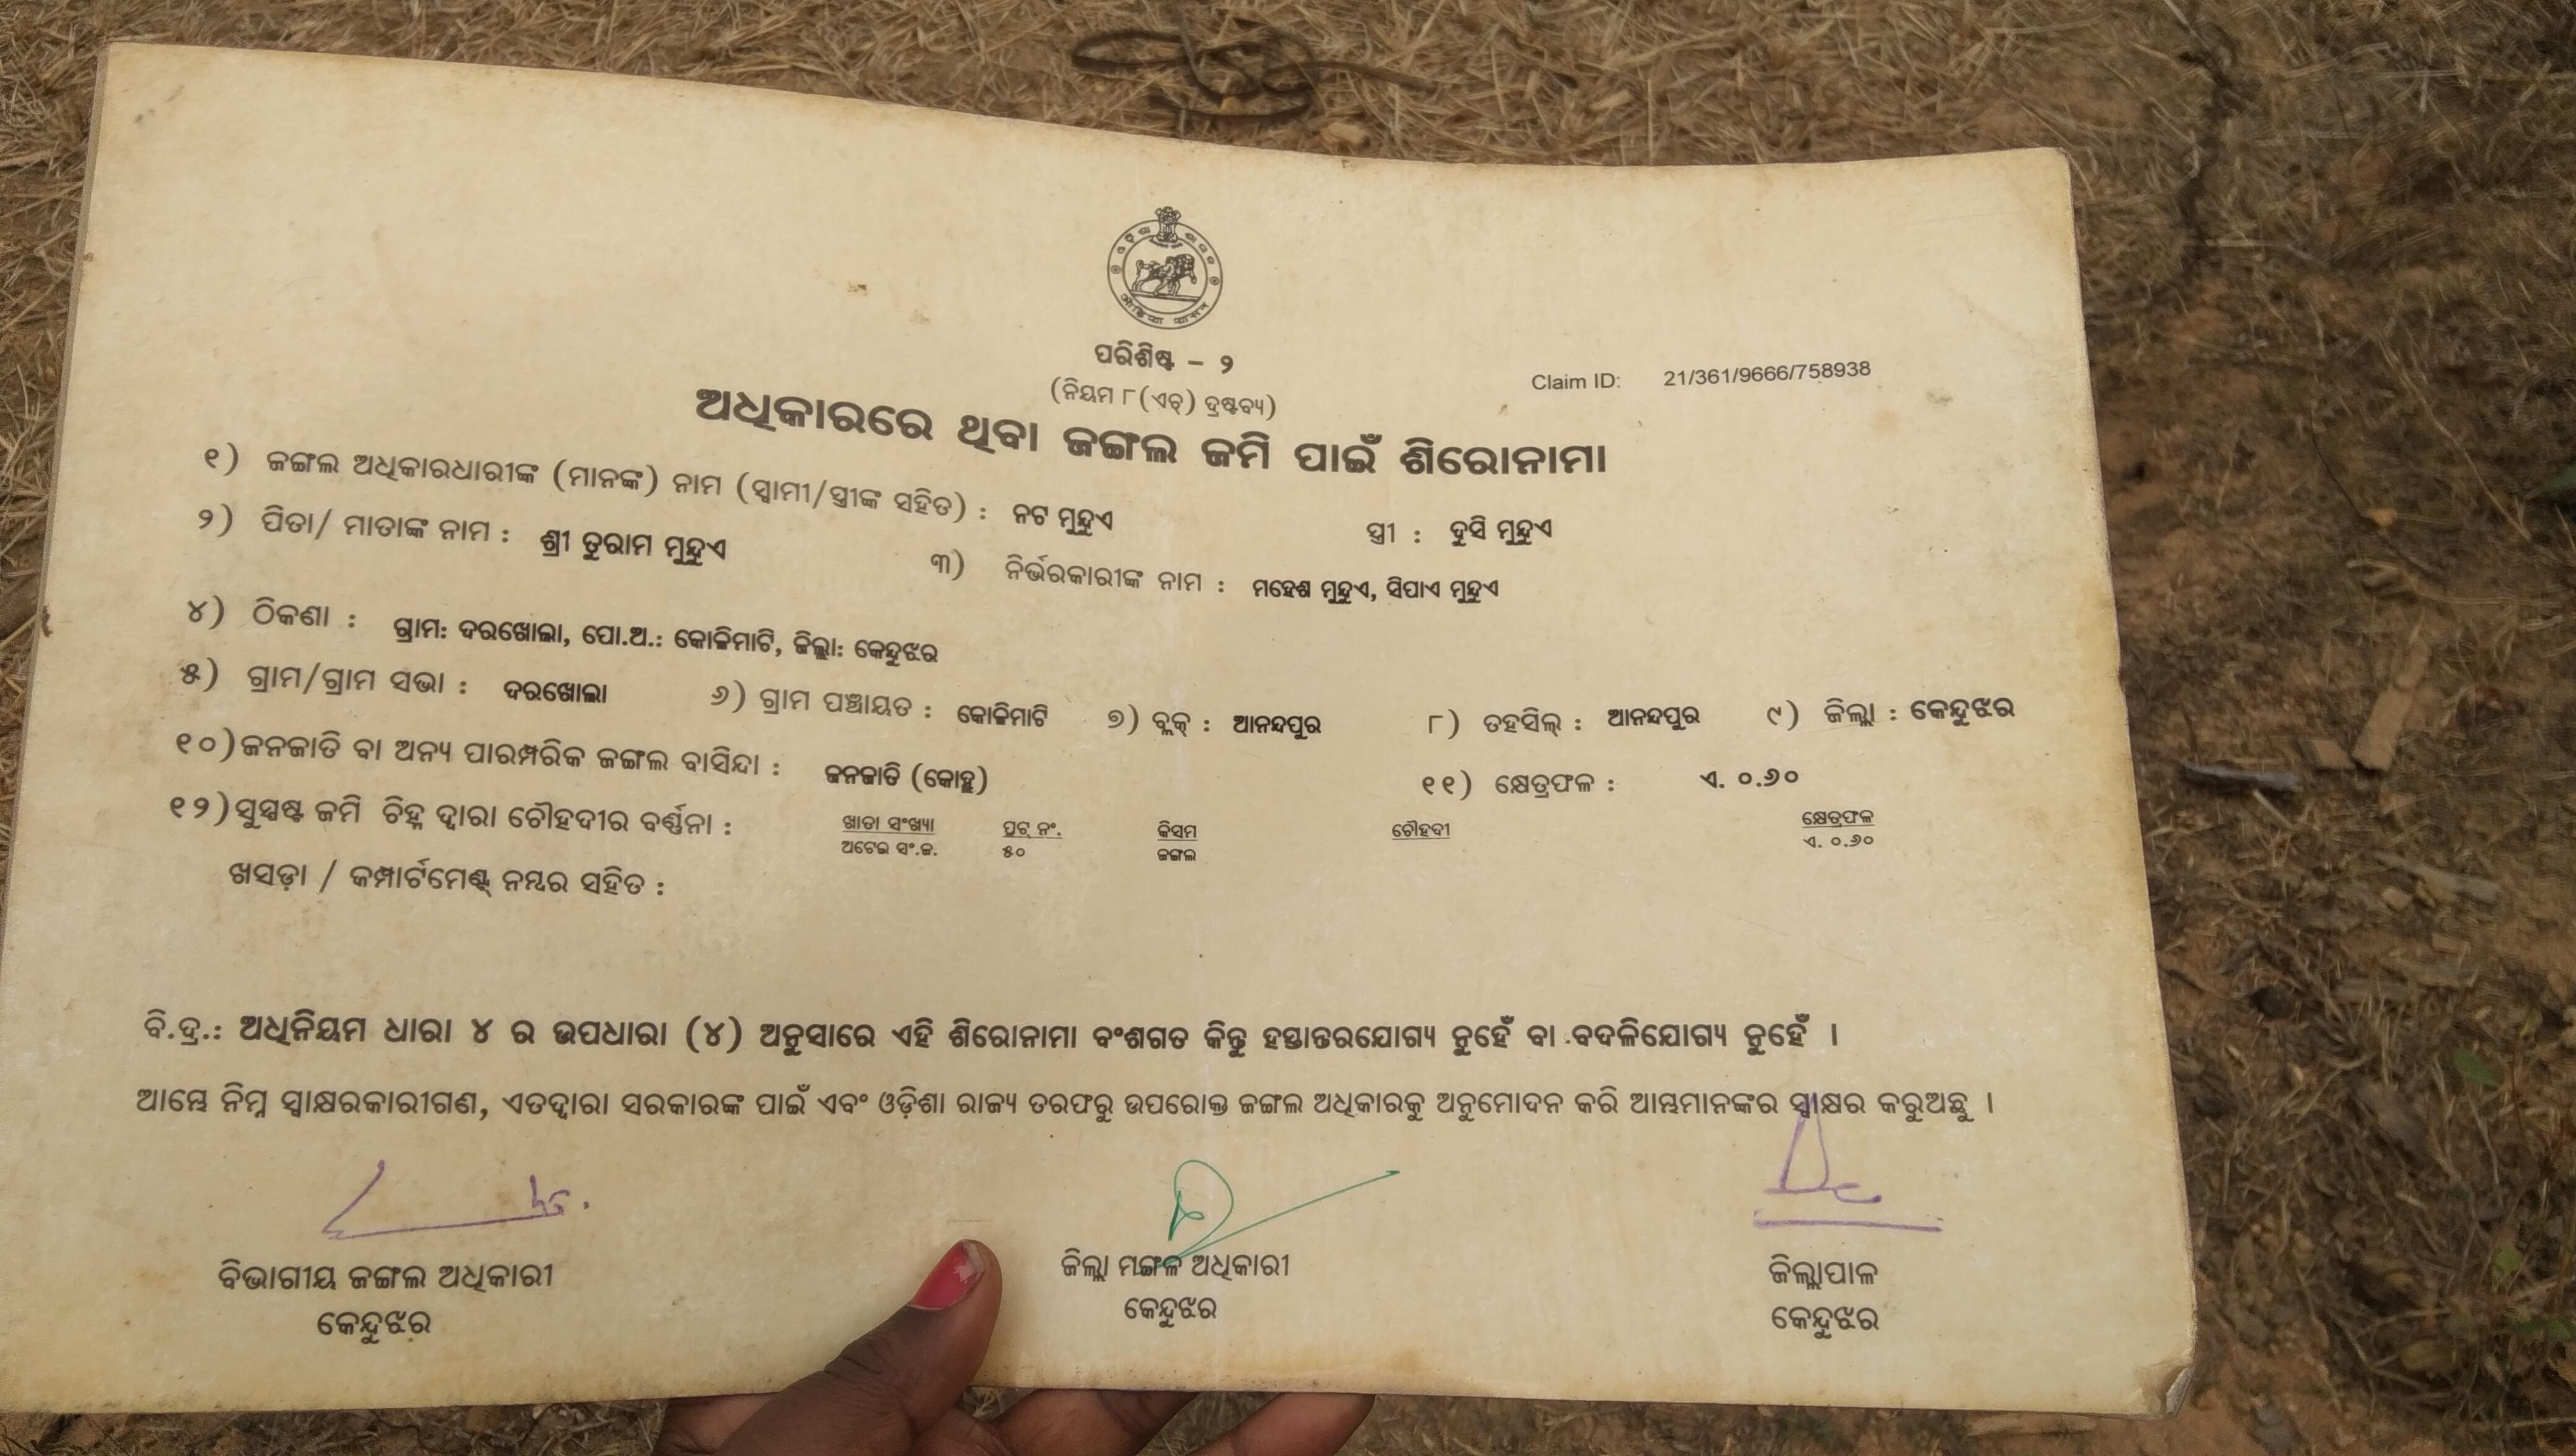 ପରିଶିଷ୍ଟ – ୨
(ନିୟମ ୮(ଏଚ୍) ଦ୍ରଷ୍ଟବ୍ୟ)
Claim ID: 21/361/9666/758938
ଅଧିକାରରେ ଥିବା ଜଙ୍ଗଲ ଜମି ପାଇଁ ଶିରୋନାମା
୧) ଜଙ୍ଗଲ ଅଧିକାରଧାରୀଙ୍କ (ମାନଙ୍କ) ନାମ (ସ୍ୱାମୀ/ସ୍ତ୍ରୀଙ୍କ ସହିତ) : ନଟ ମୁନ୍ଦୁଏ ସ୍ତ୍ରୀ : ଦୁସି ମୁନ୍ଦୁଏ
୨) ପିତା/ ମାତାଙ୍କ ନାମ : ଶ୍ରୀ ତୁରାମ ମୁନ୍ଦୁଏ ୩) ନିର୍ଭରକାରୀଙ୍କ ନାମ : ମହେଶ ମୁନ୍ଦୁଏ, ସିପାଏ ମୁନ୍ଦୁଏ
୪) ଠିକଣା : ଗ୍ରାମ: ଦରଖୋଲା, ପୋ.ଅ.: କୋଳିମାଟି, ଜିଲ୍ଲା: କେନ୍ଦୁଝର
୫) ଗ୍ରାମ/ଗ୍ରାମ ସଭା : ଦରଖୋଲା ୬) ଗ୍ରାମ ପଞ୍ଚାୟତ : କୋଳିମାଟି ୭) ବ୍ଲକ୍ : ଆନନ୍ଦପୁର ୮) ତହସିଲ୍ : ଆନନ୍ଦପୁର ୯) ଜିଲ୍ଲା : କେନ୍ଦୁଝର
୧୦) ଜନଜାତି ବା ଅନ୍ୟ ପାରମ୍ପରିକ ଜଙ୍ଗଲ ବାସିନ୍ଦା : ଜନଜାତି (କୋହ୍ଲ) ୧୧) କ୍ଷେତ୍ରଫଳ : ଏ. ୦.୬୦
୧୨) ସୁସ୍ପଷ୍ଟ ଜମି ଚିହ୍ନ ଦ୍ୱାରା ଚୌହଦୀର ବର୍ଣ୍ଣନା : ଖାତା ସଂଖ୍ୟା ପ୍ଲଟ୍ ନଂ. କିସମ ଚୌହଦୀ କ୍ଷେତ୍ରଫଳ
ଅଟେଇ ସଂ.ଜ. ୫୦ ଜଙ୍ଗଲ ଏ. ୦.୬୦
ଖସଡ଼ା / କମ୍ପାର୍ଟମେଣ୍ଟ୍ ନମ୍ବର ସହିତ :
ବି.ଦ୍ର.: ଅଧିନିୟମ ଧାରା ୪ ର ଉପଧାରା (୪) ଅନୁସାରେ ଏହି ଶିରୋନାମା ବଂଶଗତ କିନ୍ତୁ ହସ୍ତାନ୍ତରଯୋଗ୍ୟ ନୁହେଁ ବା ବଦଳିଯୋଗ୍ୟ ନୁହେଁ ।
ଆମ୍ଭେ ନିମ୍ନ ସ୍ୱାକ୍ଷରକାରୀଗଣ, ଏତଦ୍ୱାରା ସରକାରଙ୍କ ପାଇଁ ଏବଂ ଓଡ଼ିଶା ରାଜ୍ୟ ତରଫରୁ ଉପରୋକ୍ତ ଜଙ୍ଗଲ ଅଧିକାରକୁ ଅନୁମୋଦନ କରି ଆମ୍ଭମାନଙ୍କର ସ୍ୱାକ୍ଷର କରୁଅଛୁ ।
ବିଭାଗୀୟ ଜଙ୍ଗଲ ଅଧିକାରୀ ଜିଲ୍ଲା ମଙ୍ଗଳ ଅଧିକାରୀ ଜିଲ୍ଲାପାଳ
କେନ୍ଦୁଝର କେନ୍ଦୁଝର କେନ୍ଦୁଝର